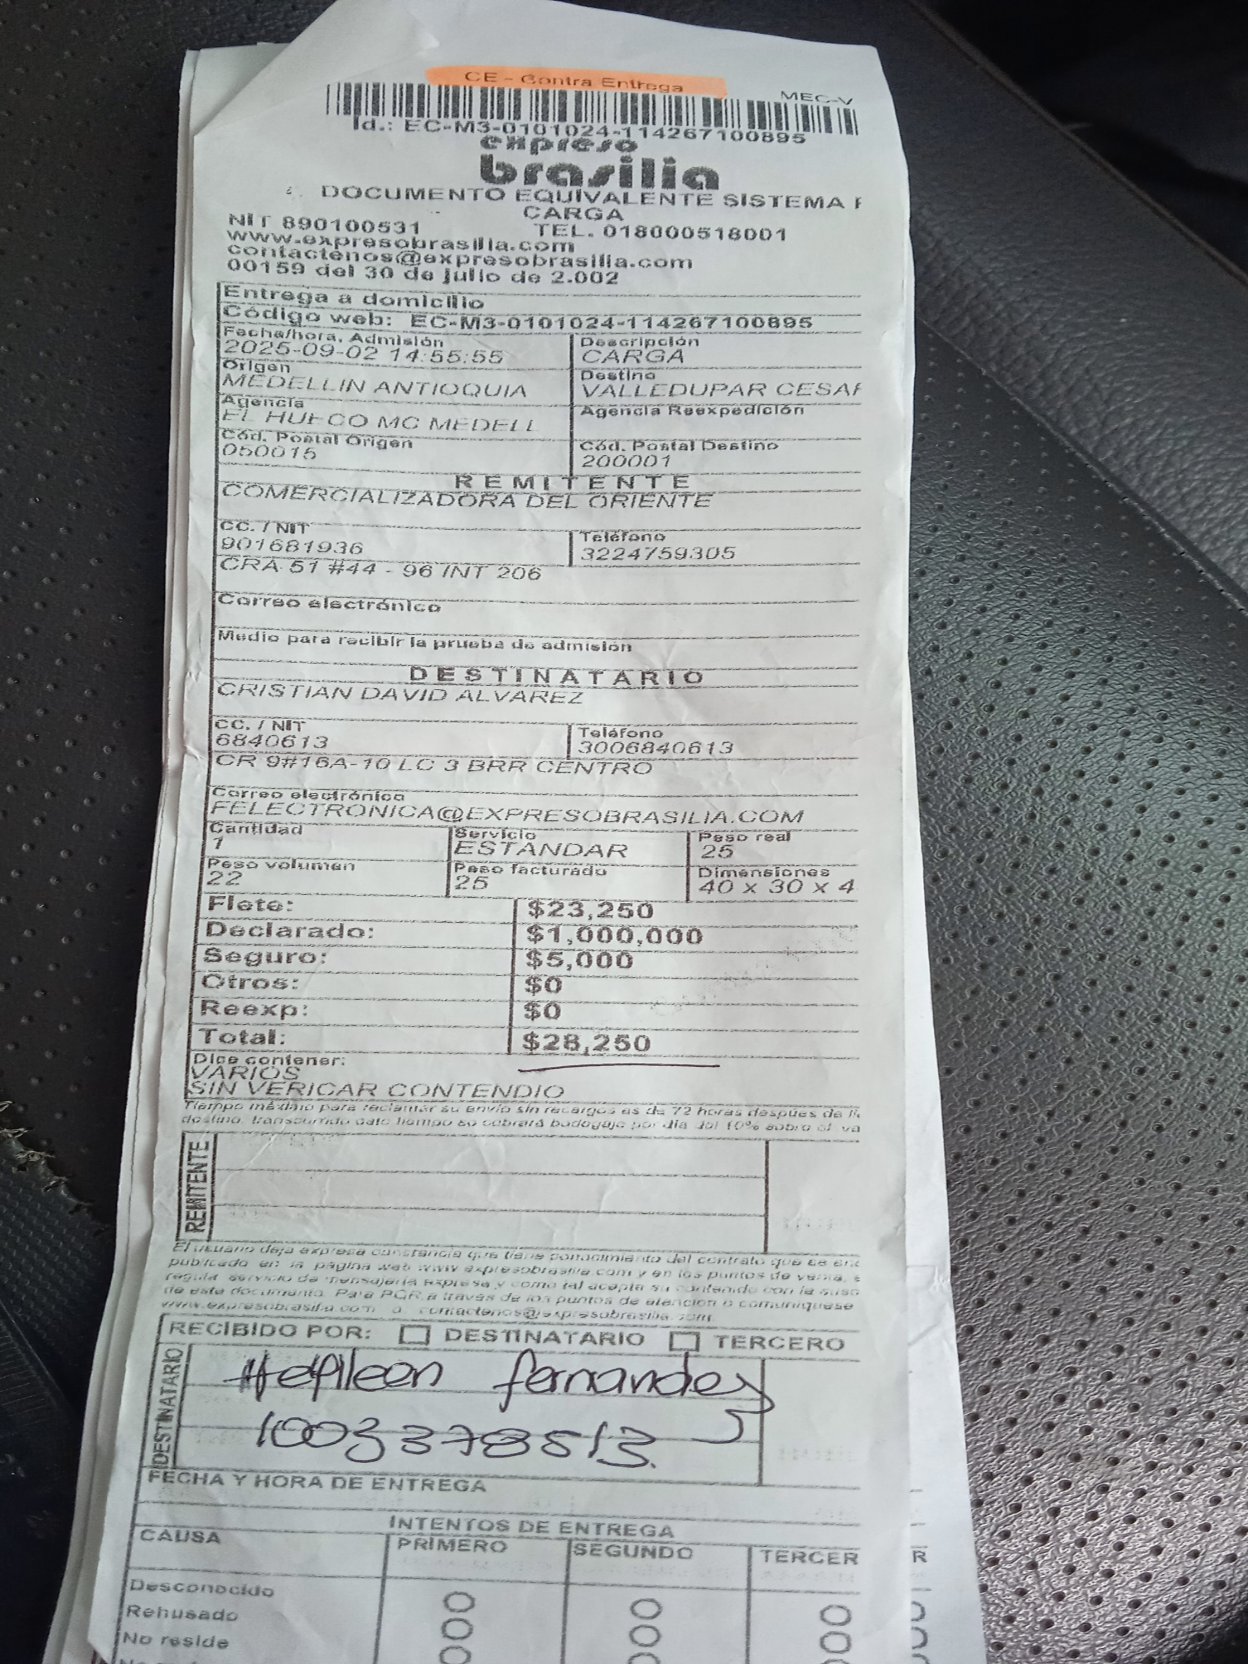 CE - Contra Entrega
MEC-V
Id.: EC-M3-0101024-114267100895
expreso
brasilia
DOCUMENTO EQUIVALENTE SISTEMA
CARGA
NIT 890100531 TEL. 018000518001
www.expresobrasilia.com
contactenos@expresobrasilia.com
00159 del 30 de julio de 2.002
Entrega a domicilio
Código web: EC-M3-0101024-114267100895
Fecha/hora, Admisión Descripción
2025-09-02 14:55:55 CARGA
Origen Destino
MEDELLIN ANTIOQUIA VALLEDUPAR CESAR
Agencia Agencia Reexpedición
EL HUECO MC MEDELL
Cód. Postal Origen Cód. Postal Destino
050015 200001
REMITENTE
COMERCIALIZADORA DEL ORIENTE
CC. / NIT Teléfono
901681936 3224759305
CRA 51 #44 - 96 INT 206
Correo electrónico
Medio para recibir la prueba de admisión
DESTINATARIO
CRISTIAN DAVID ALVAREZ
CC. / NIT Teléfono
6840613 3006840613
CR 9#16A-10 LC 3 BRR CENTRO
Correo electrónico
FELECTRONICA@EXPRESOBRASILIA.COM
Cantidad Servicio Peso real
1 ESTANDAR 25
Peso volumen Peso facturado Dimensiones
22 25 40 x 30 x 4
Flete: $23,250
Declarado: $1,000,000
Seguro: $5,000
Otros: $0
Reexp: $0
Total: $28,250
Dice contener:
VARIOS
SIN VERICAR CONTENDIO
Tiempo máximo para reclamar su envío sin recargos es de 72 horas después de
destino, transcurrido este tiempo se cobrará bodegaje por día del 10% sobre el va
REMITENTE
El usuario deja expresa constancia que tiene conocimiento del contrato que se enc
publicado en la página web www.expresobrasilia.com y en los puntos de venta,
regula servicio de mensajería expresa y como tal acepta su contenido con la susc
de este documento. Para PQR a través de los puntos de atención o comuníquese
www.expresobrasilia.com o contactenos@expresobrasilia.com
RECIBIDO POR: DESTINATARIO TERCERO
DESTINATARIO
fernandez
1003378513.
FECHA Y HORA DE ENTREGA
INTENTOS DE ENTREGA
CAUSA PRIMERO SEGUNDO TERCER R
Desconocido
Rehusado
No reside